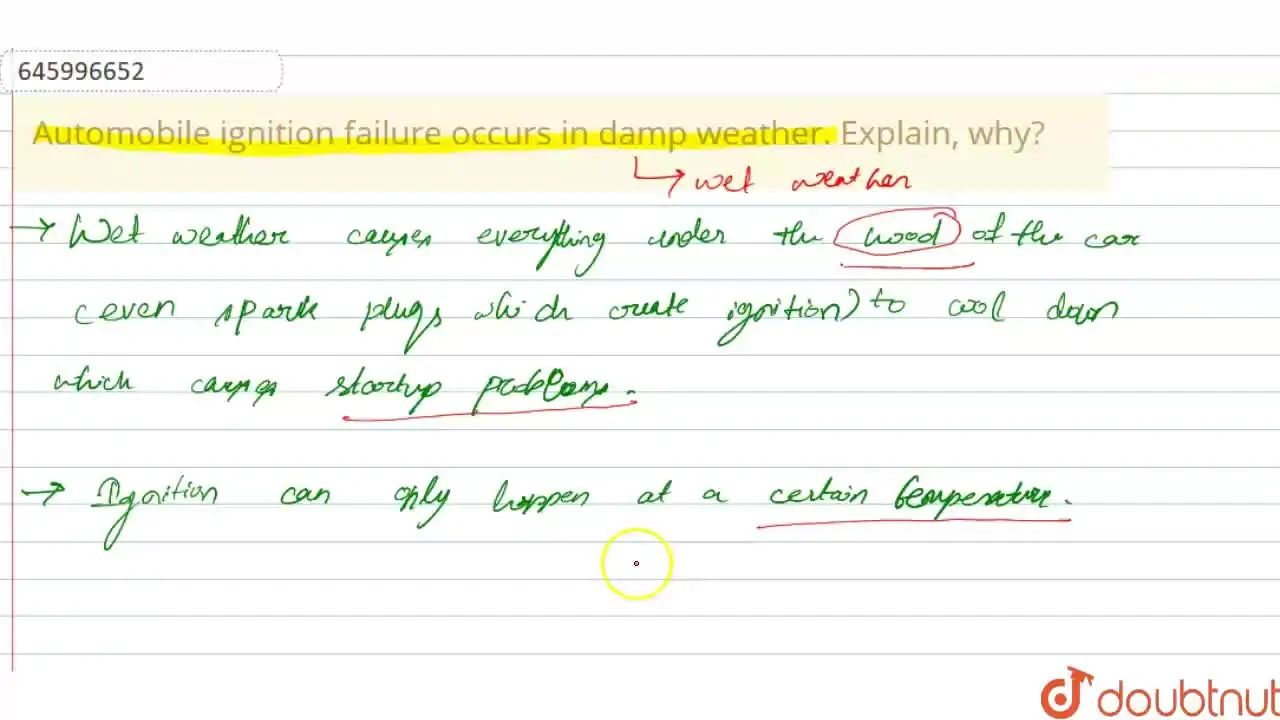 645996652
Automobile ignition failure occurs in damp weather. Explain, why?
→ wet weather
→ Wet weather causes everything under the hood of the car
(even spark plugs which create ignition) to cool down
which causes startup problems.
→ Ignition can only happen at a certain temperature.
doubtnut